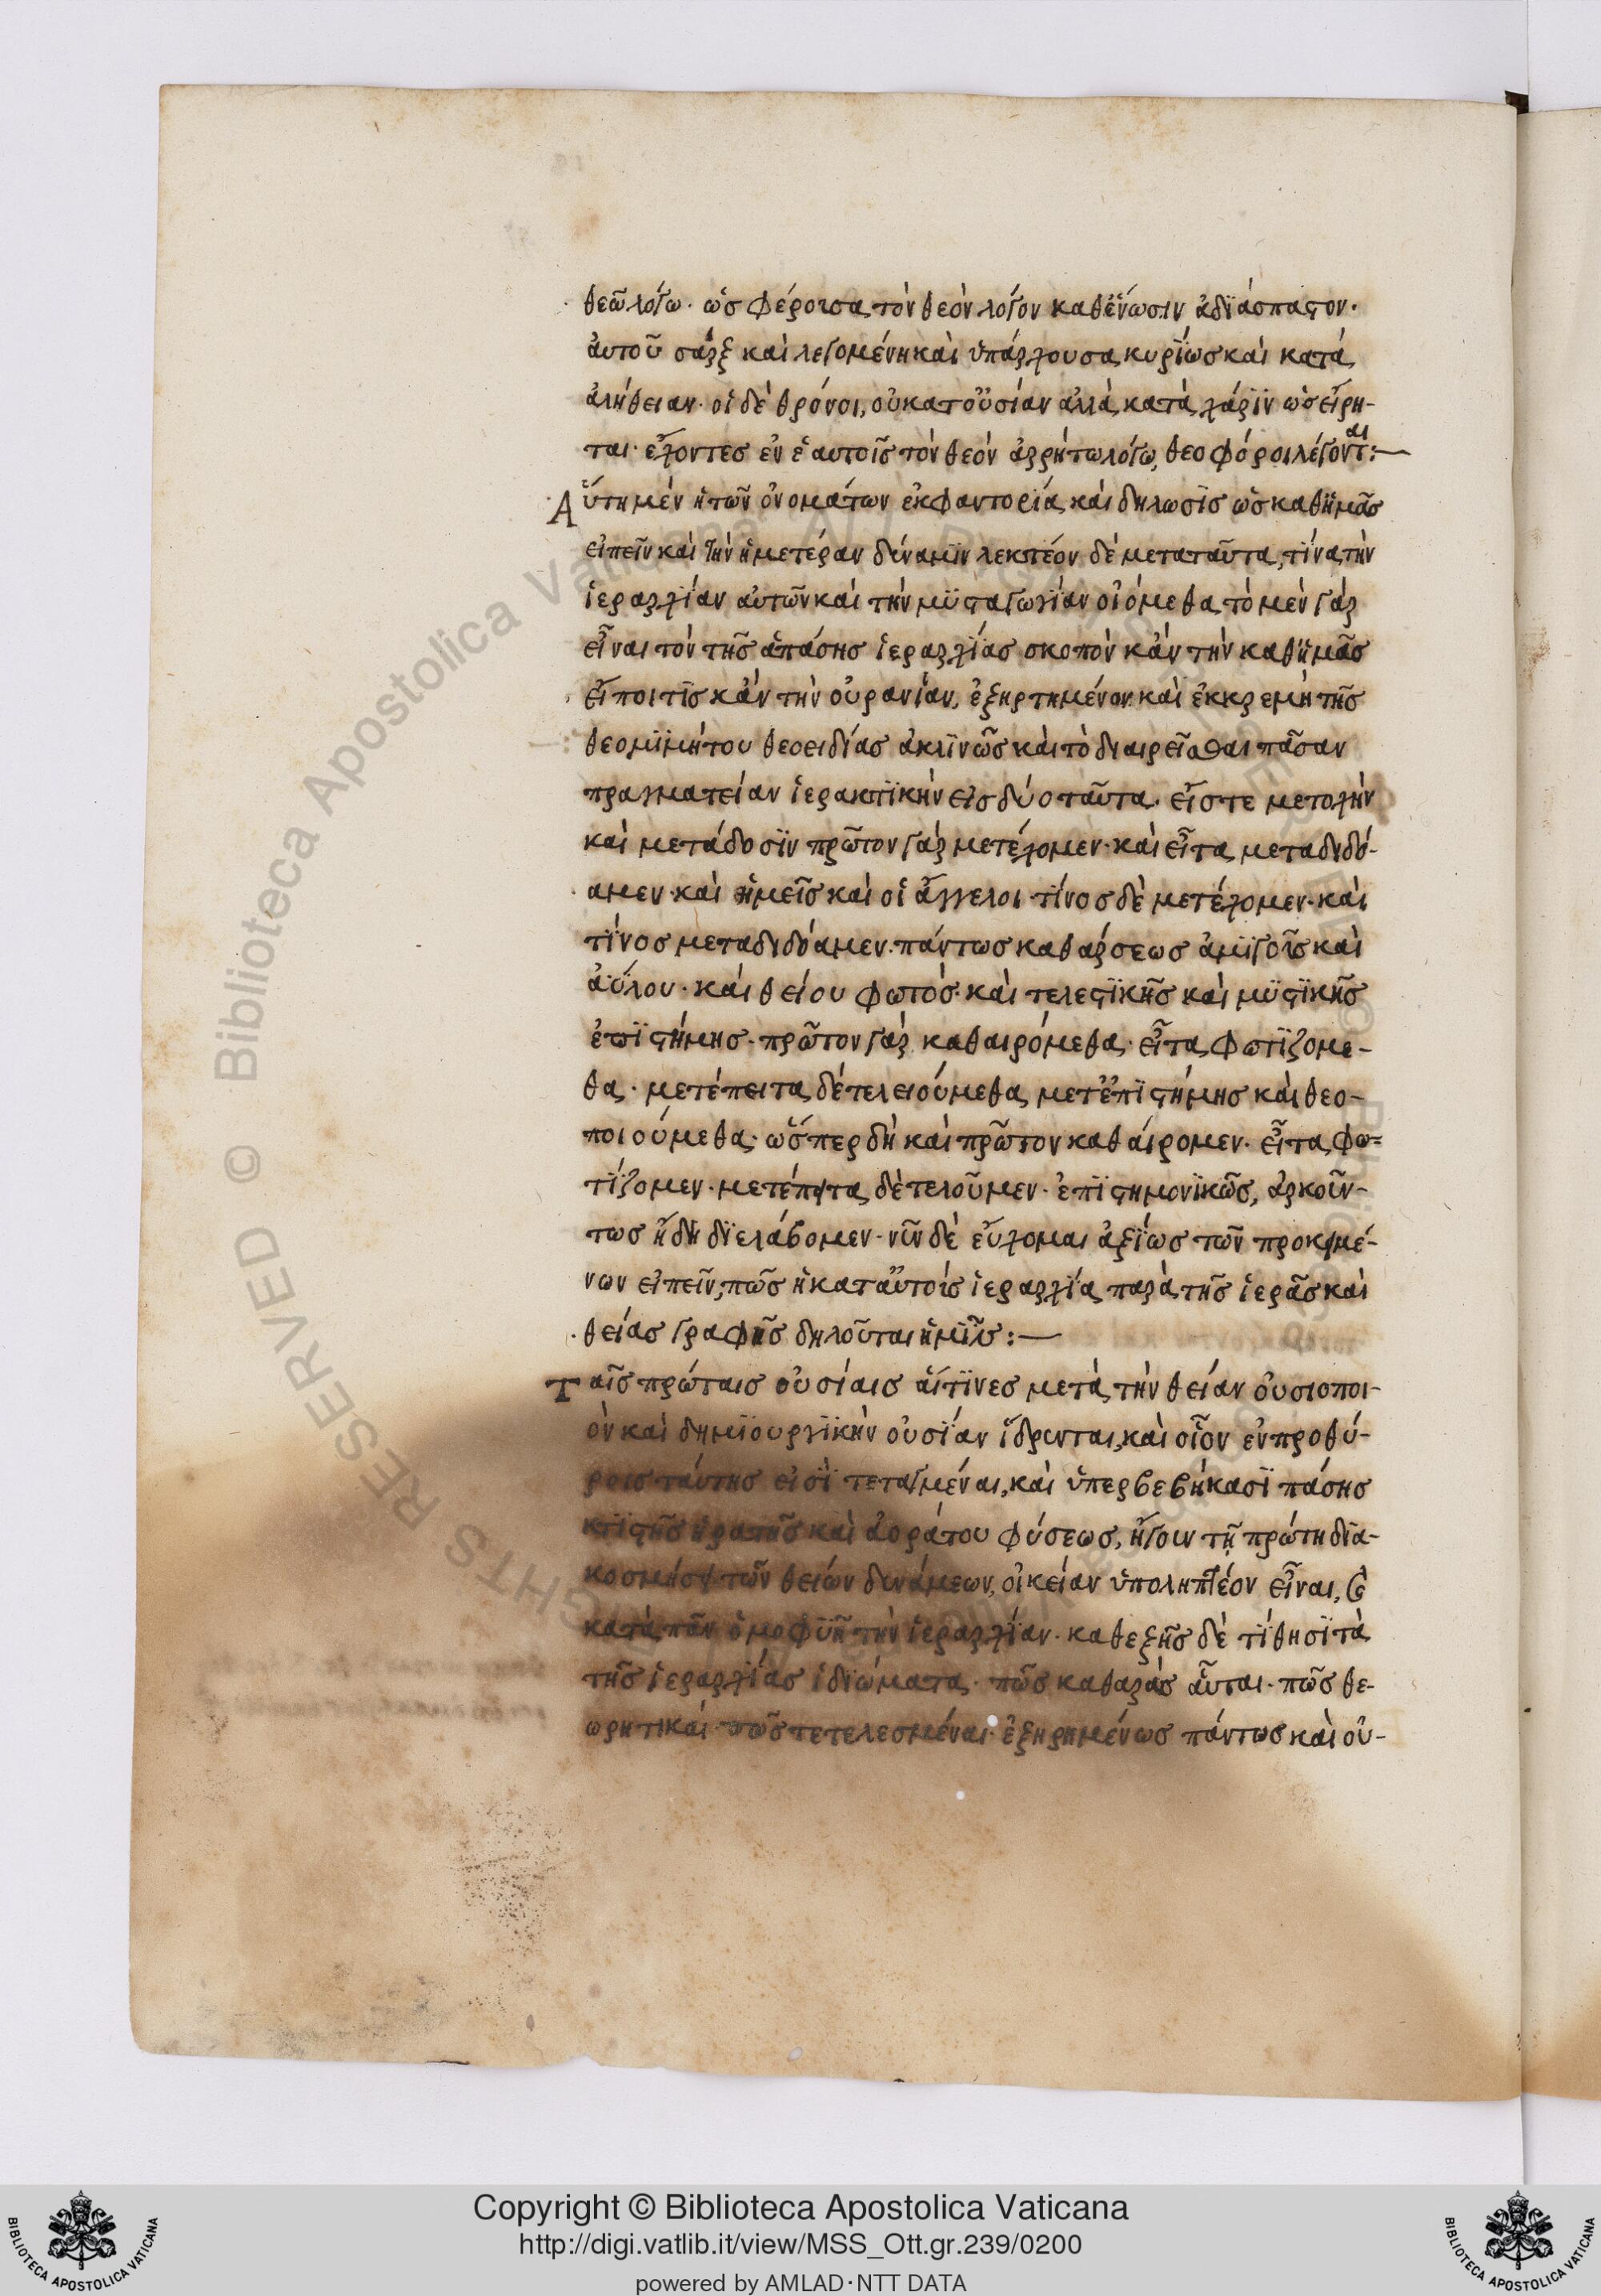 θεῶ λόγω· ὡς φέρουσα τὸν θεὸν λόγον καθἕνωσιν ἀδϊάσπαστον·
ἀυτοῦ σὰρξ καὶ λεγομένη καὶ ὑπάρχουσα κυρΐως καὶ κατὰ
ἀλήθειαν· οἱ δὲ θρόνοι, οὐκατοὐσίαν ἀλλὰ κατὰ χάρϊν ὡς εἴρη-
ται· ἔχοντες ἐν ἑαυτοῖς τὸν θεὸν ἀρρήτω λόγω, θεοφόροι λέγονται:—
Αὕτη μὲν ἡ τῶν ὀνομάτων ἐκφαντορία καὶ δήλωσϊς ὡς καθἡμᾶς
εἰπεῖν καὶ τὴν ἡμετέραν δύναμϊν λεκτέον δὲ μεταταῦτα, τίνα τὴν
ἱεραρχίαν αὐτῶν καὶ τὴν μϋσταγωγίαν οἰόμεθα τὸ μὲν γὰρ
εἶναι τὸν τῆς ἁπάσης ἱεραρχΐας σκοπὸν κἀν τὴν καθἡμᾶς
εἴποι τϊς κἀν τὴν οὐρανίαν, ἐξηρτημένον καὶ ἐκκρεμῆ τῆς
θεομϊμήτου θεοειδίας ἀκλϊνῶς καὶ τὸ διαιρεῖσθαι πᾶσαν
πραγματείαν ἱεραρτϊκὴν εἰς δύο ταῦτα· εἴς τε μετοχὴν
καὶ μετάδοσϊν πρῶτον γὰρ μετέχομεν· καὶ εἶτα μεταδιδό-
αμεν· καὶ ἡμεῖς καὶ οἱ ἄγγελοι τίνος δὲ μετέχομεν· καὶ
τΐνος μεταδιδόαμεν. πάντως καθάρσεως ἀμϊγοῦς καὶ
ἀΰλου· καὶ θείου φωτός· καὶ τελεστϊκῆς καὶ μϋστϊκῆς
ἐπϊστήμης· πρῶτον γὰρ καθαιρόμεθα· εἶτα φωτϊζόμε-
θα· μετέπειτα δὲ τελειούμεθα μετἐπϊστήμης καὶ θεο-
ποιούμεθα· ὥσπερ δὴ καὶ πρῶτον καθαίρομεν· εἶτα φω=
τΐζομεν· μετέπειτα δὲ τελοῦμεν· ἐπϊστημονϊκῶς, ἀρκοῦν-
τως ἤδη δϊελάβομεν· νῦν δὲ εὔχομαι ἀξΐως τῶν προκειμέ-
νων εἰπεῖν, πῶς ἡ καταὐτοὺς ἱεραρχΐα παρὰ τῆς ἱερᾶς καὶ
θείας γραφῆς δηλοῦται ἡμῖν:—
Ταῖς πρώταις οὐσίαις αἵτϊνες μετὰ τὴν θείαν οὐσιοποι-
ὸν καὶ δημϊουργϊκὴν οὐσΐαν ἵδρυνται, καὶ οἷον ἐν προθύ-
ροις ταύτης εἰσῒ τεταγμέναι, καὶ ὑπερβεβήκασϊ πάσης
κτϊστῆς ὁρατῆς καὶ ἀοράτου φύσεως, ἤγουν τῆ πρώτη δϊα-
κοσμήσει τῶν θείων δυνάμεων, οἰκείαν ὑποληπτέον εἶναι, καὶ
κατὰ πᾶν ὁμοφϋῆ τὴν ἱεραρχΐαν· καθεξῆς δὲ τΐθησϊ τὰ
τῆς ἱεραρχΐας ἰδϊώματα· πῶς καθαραὶ αὗται· πῶς θε-
ωρητικαί· πῶς τετελεσμέναι· ἐξηρημένως πάντως καὶ οὐ-